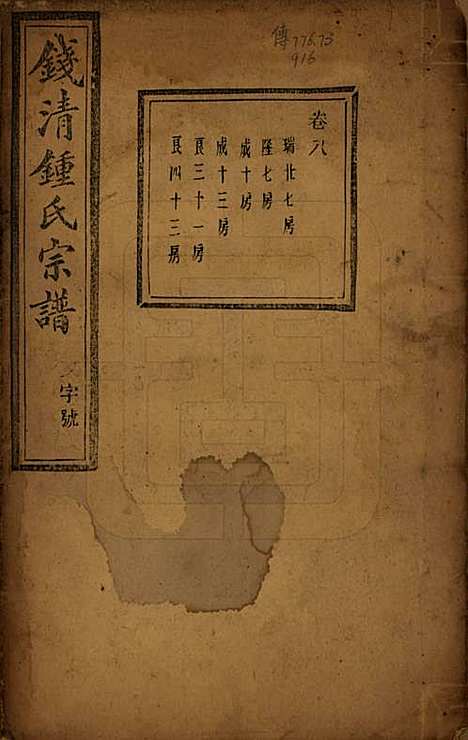 傳 776.73
916
卷八
瑞北七房
隆七房
成十房
成十三房
良三十一房
良四十三房
錢清鍾氏宗譜
字號